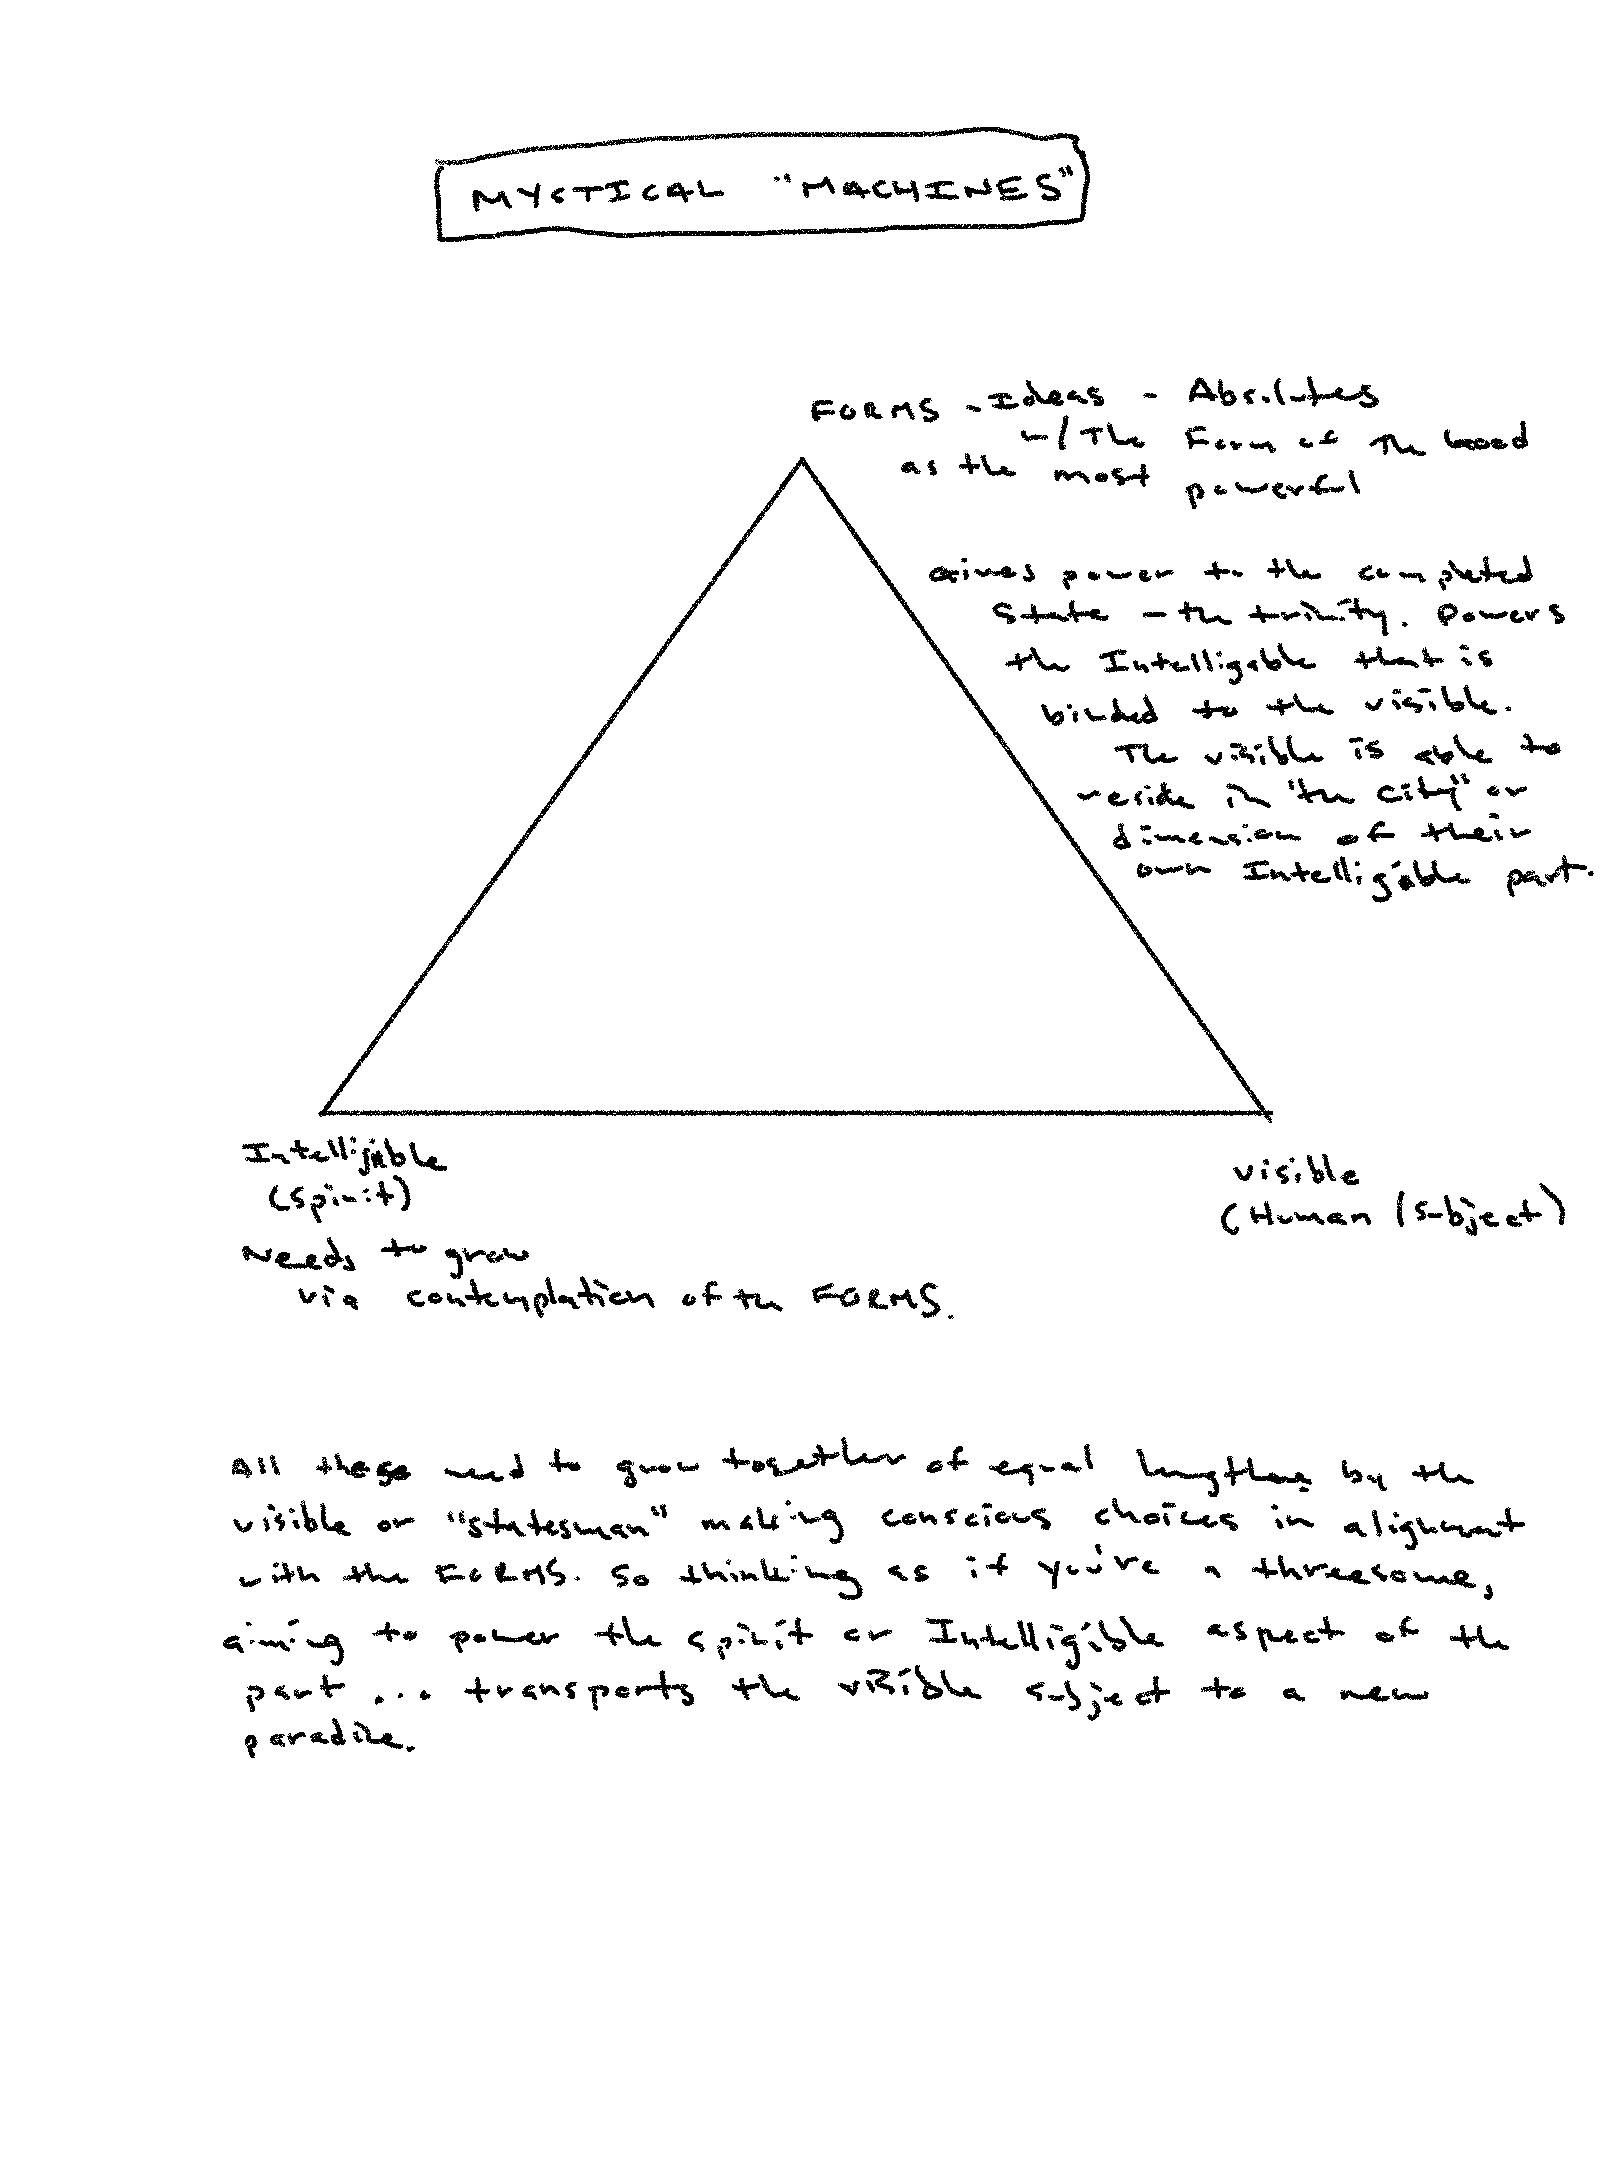 MYSTICAL "MACHINES"
FORMS - Ideas - Absolutes
w/ The Form of The Good
as the most powerful
Gives power to the completed
State - the trinity. Powers
the Intelligable that is
binded to the visible.
The visible is able to
reside in "the City" or
dimension of their
own Intelligable part.
Intelligable
(spirit)
Needs to grow
via contemplation of the FORMS.
visible
(Human / subject)
All these need to grow together of equal lengths by the
visible or "statesman" making conscious choices in alignment
with the FORMS. So thinking as if you've a threesome,
aiming to power the spirit or Intelligible aspect of the
part ... transports the visible subject to a new
paradise.